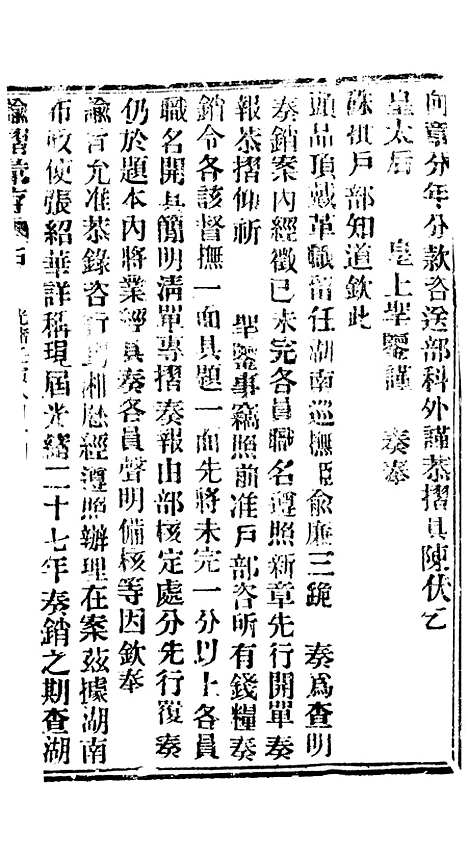 向章分年分款咨送部科外謹恭摺具陳伏乞
皇太后 皇上聖鑒謹 奏奉
硃批戶部知道欽此
頭品頂戴革職留任湖南巡撫臣俞廉三跪 奏為查明
奏銷案內經徵已未完各員職名遵照新章先行開單奏
報恭摺仰祈 聖鑒事竊照前准戶部咨所有錢糧奏
銷令各該督撫一面具題一面先將未完一分以上各員
職名開具簡明清單專摺奏報由部核定處分先行覆奏
仍於題本內將業經具奏各員聲明備核等因欽奉
諭旨允准恭錄咨行到湘歷經遵照辦理在案茲據湖南
布政使張紹華詳稱現屆光緒二十七年奏銷之期查湖
諭摺彙存 光緒